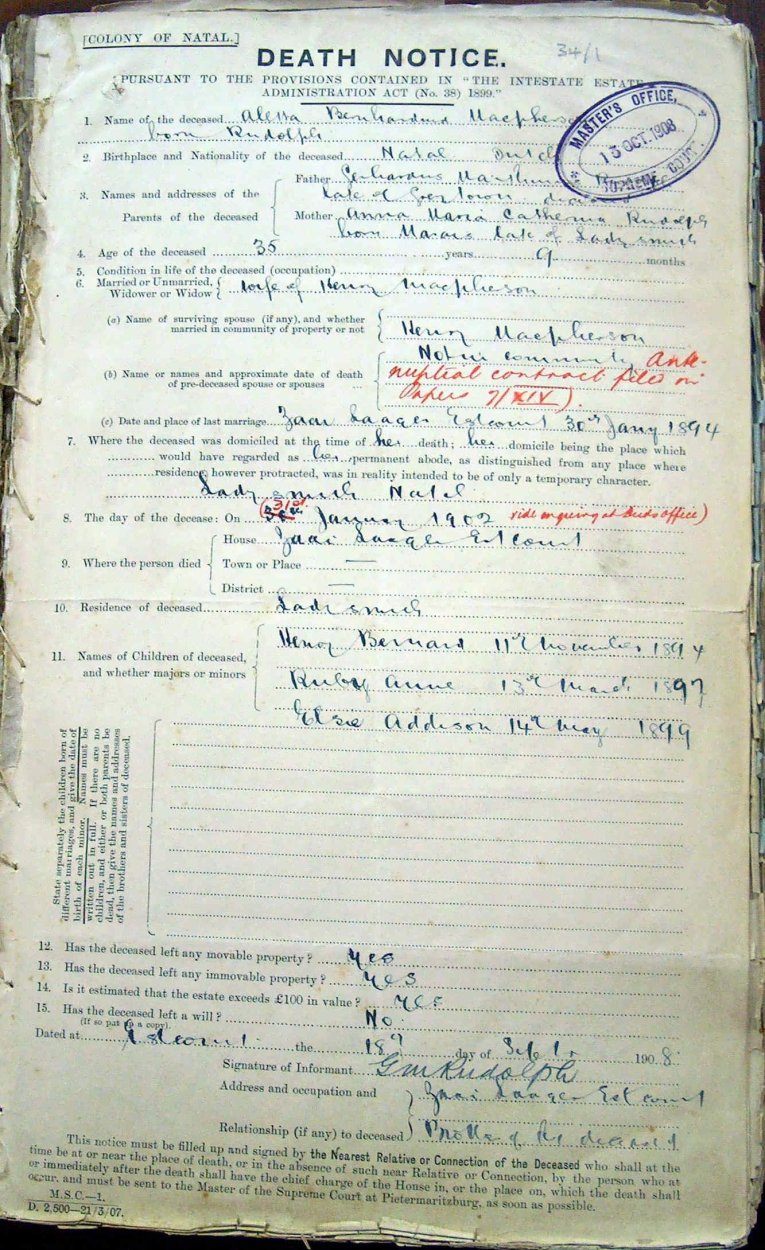 [COLONY OF NATAL.]
34/1
DEATH NOTICE.
PURSUANT TO THE PROVISIONS CONTAINED IN "THE INTESTATE ESTATE
ADMINISTRATION ACT (No. 38) 1899."
MASTER'S OFFICE,
13 OCT. 1908
SUPREME COURT.
1. Name of the deceased Aletta Bernhardina Macpherson
born Rudolph
2. Birthplace and Nationality of the deceased Natal Dutch
3. Names and addresses of the Parents of the deceased
Father Gerhardus Marthinus
late of Greytown
Mother Anna Maria Catherina Rudolph
born Marais late of Ladysmith
4. Age of the deceased 35 years 9 months
5. Condition in life of the deceased (occupation)
6. Married or Unmarried, Widower or Widow wife of Henry Macpherson
(a) Name of surviving spouse (if any), and whether
married in community of property or not
Henry Macpherson
Not in community Ante-
nuptial contract filed in
Papers 7/XIV).
(b) Name or names and approximate date of death
of pre-deceased spouse or spouses
(c) Date and place of last marriage Zaai Laager Estcourt 30th Jany 1894
7. Where the deceased was domiciled at the time of her death; her domicile being the place which
would have regarded as her permanent abode, as distinguished from any place where
residence, however protracted, was in reality intended to be only of a temporary character.
Ladysmith Natal
8. The day of the decease: On (31st January 1902 vide enquiry at Deeds office)
9. Where the person died
House Zaai Laager Estcourt
Town or Place —
District —
10. Residence of deceased Ladysmith
11. Names of Children of deceased,
and whether majors or minors
Henry Bernard 11th November 1894
Ruby Anne 13th March 1897
Elsie Addison 14th May 1899
State separately the children born of
different marriages, and give the date of
birth of each minor. Names must be
written out in full. If there are no
children, and either or both parents be
dead, then give the names and addresses
of the brothers and sisters of deceased.
12. Has the deceased left any movable property? Yes
13. Has the deceased left any immovable property? Yes
14. Is it estimated that the estate exceeds £100 in value? Yes
15. Has the deceased left a will? No
(If so put in a copy).
Dated at Estcourt the 18th day of Septr. 1908
Signature of Informant GMRudolph
Address and occupation and Zaai Laager Estcourt
Relationship (if any) to deceased Brother of the deceased
This notice must be filled up and signed by the Nearest Relative or Connection of the Deceased who shall at the
time be at or near the place of death, or in the absence of such near Relative or Connection, by the person who at
or immediately after the death shall have the chief charge of the House in, or the place on, which the death shall
occur, and must be sent to the Master of the Supreme Court at Pietermaritzburg, as soon as possible.
M.S.C.—1.
D. 2,500—21/3/07.